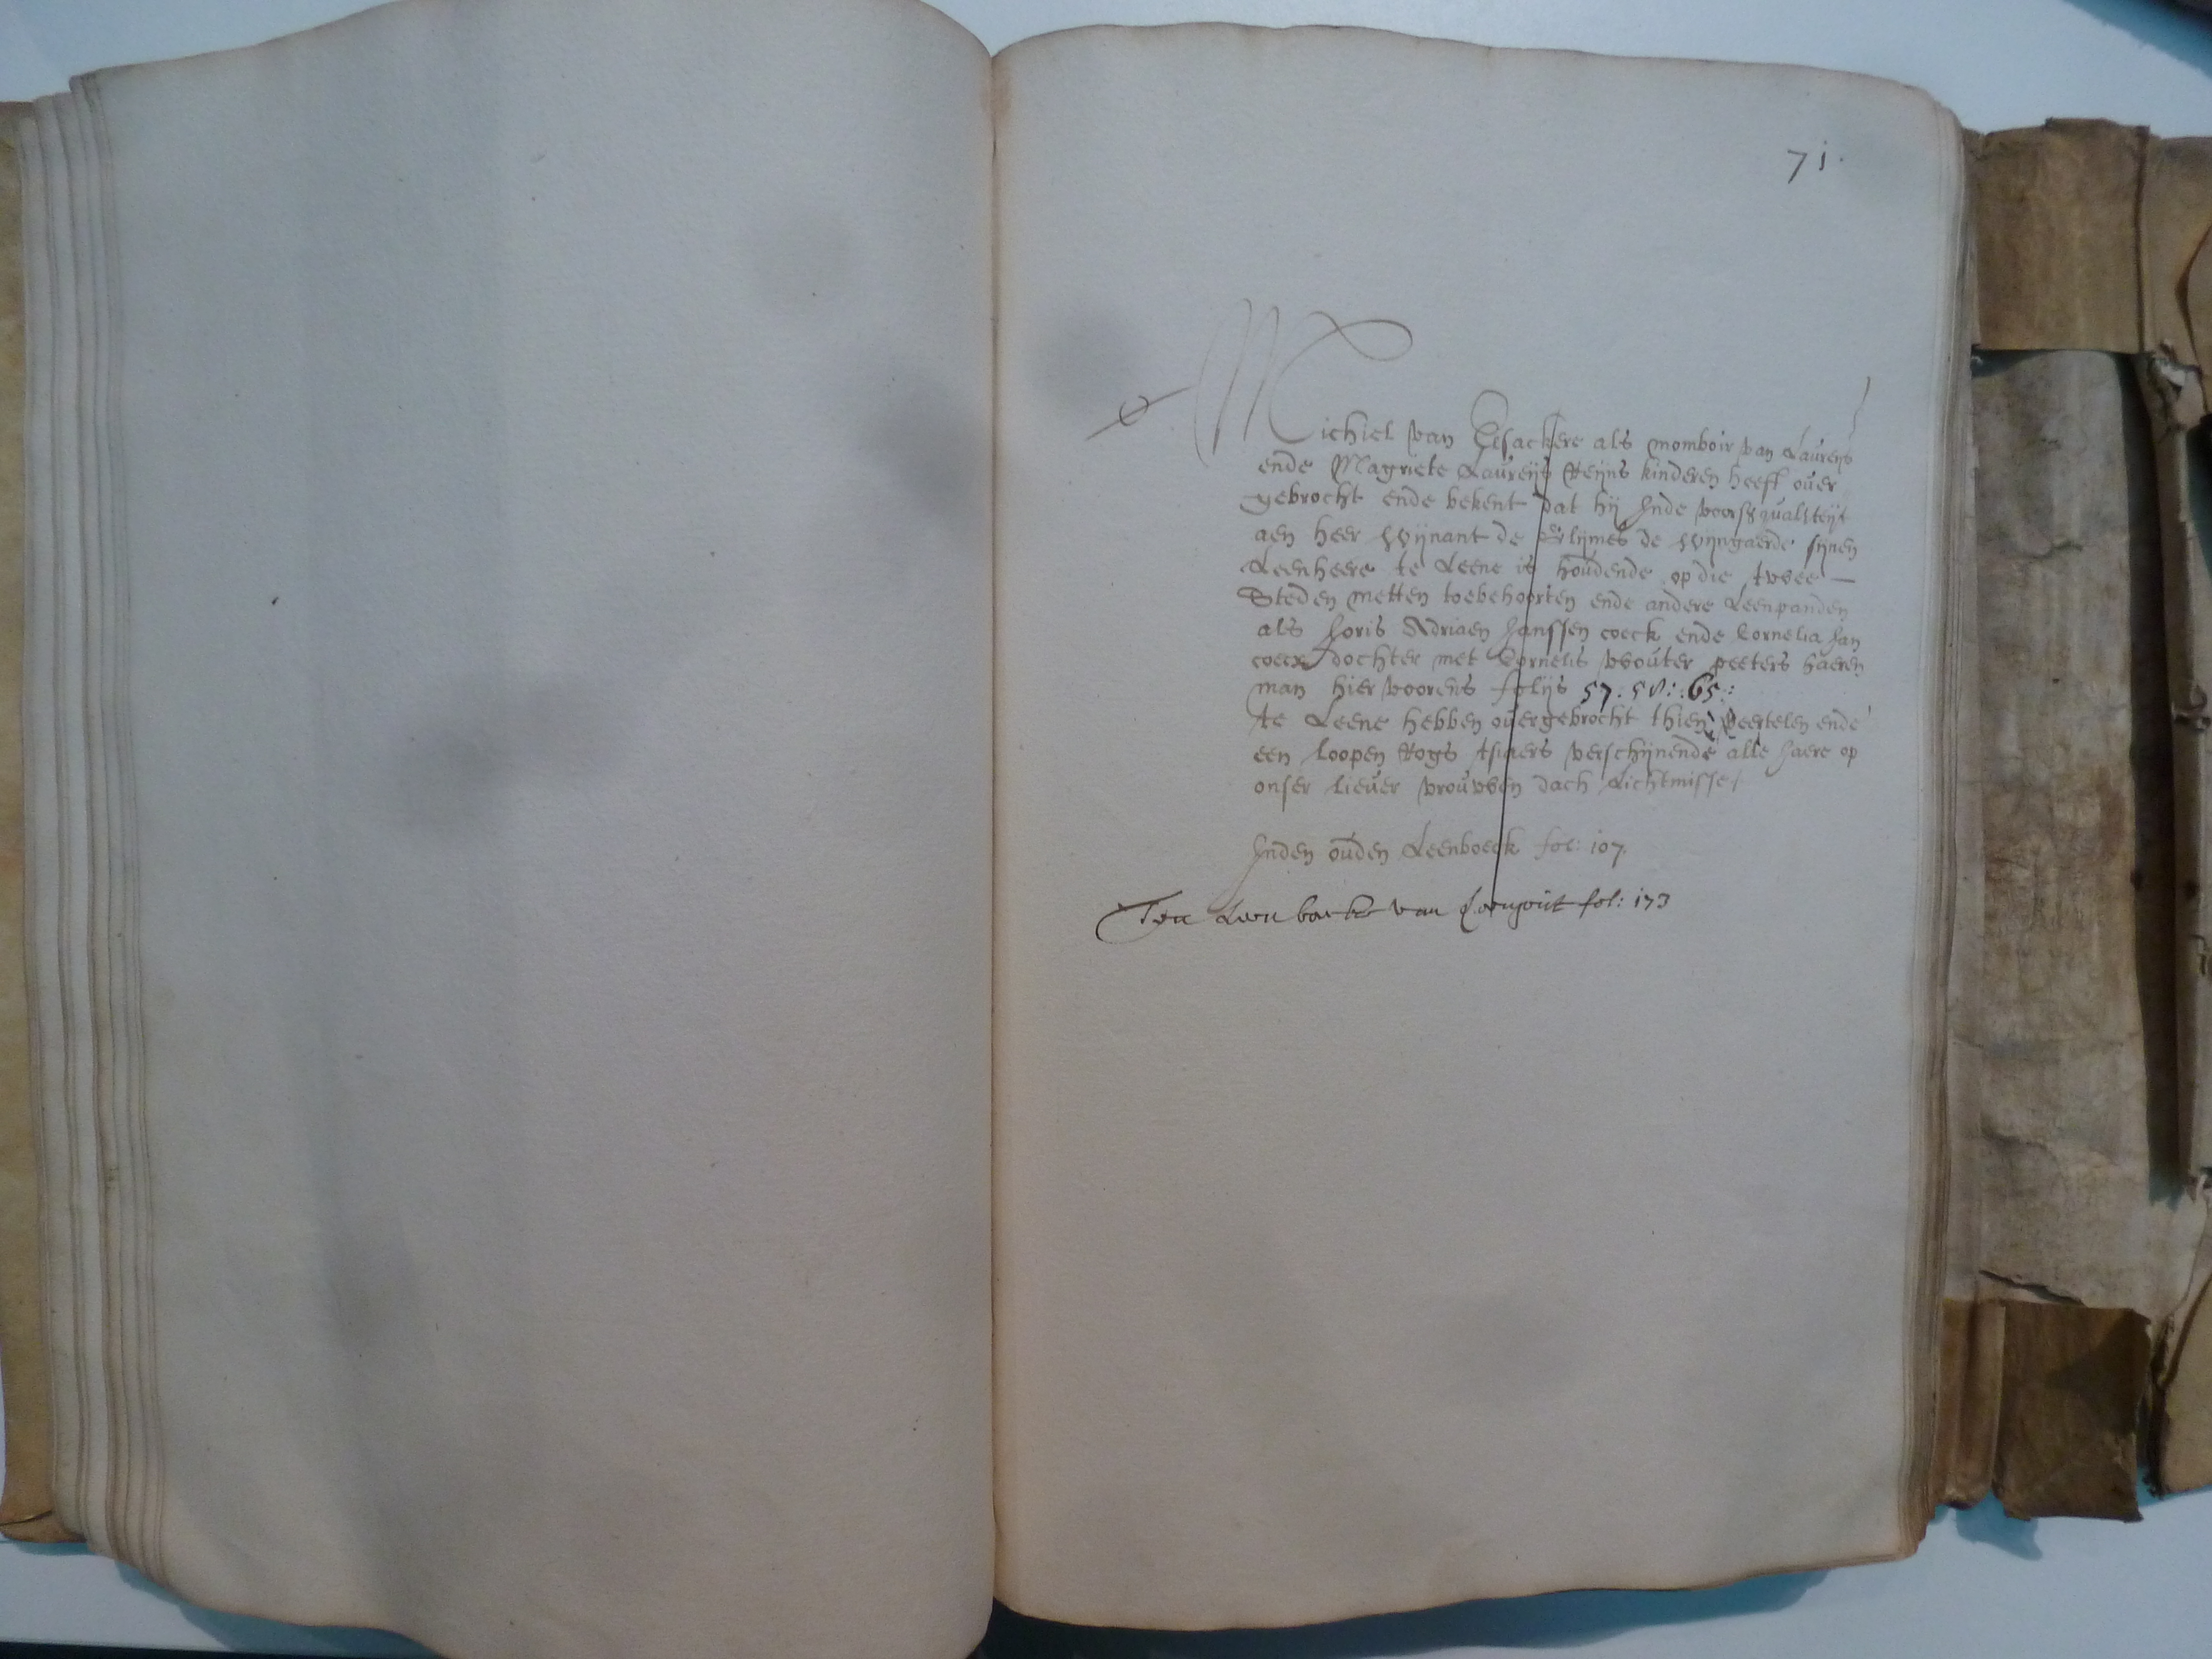 71.
Michiel van Elsackere als momboir van Laureys
ende Magriete Laureijs Reijns kinderen heeft over
gebrocht ende bekent dat hij Inde voors qualiteijt
aen heer Wijnant de de Wijngaerde sijnen
Leenheere te Leene is houdende op die twee —
Steden metten toebehoorten ende andere Leenpanden
als Joris Adriaen Janssen coeck ende Cornelia Jan
coecx dochter met Cornelis Wouter peeters haeren
man hier voorens folijs 57: 58: 65:
te Leene hebben overgebrocht thien Veertelen ende
een loopen Rogs tsiaers verschijnende alle Jaere op
onser liever vrouwen dach Lichtmisse
Inden ouden Leenboeck fol: 107.
Leen boecke van fol: 173